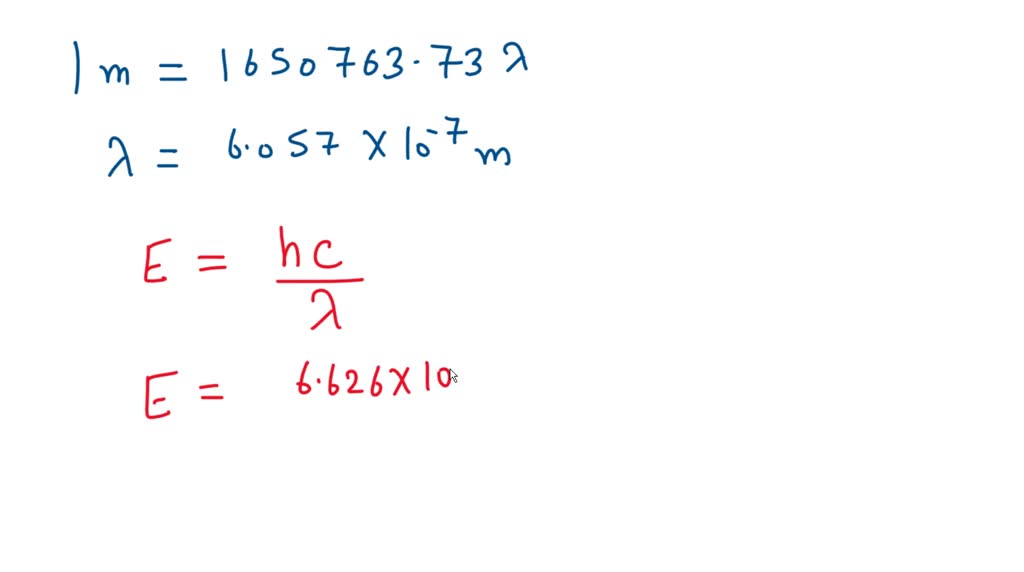 1 m = 1650763.73 λ
λ = 6.057 × 10⁻⁷ m
E = hc/λ
E = 6.626 × 10